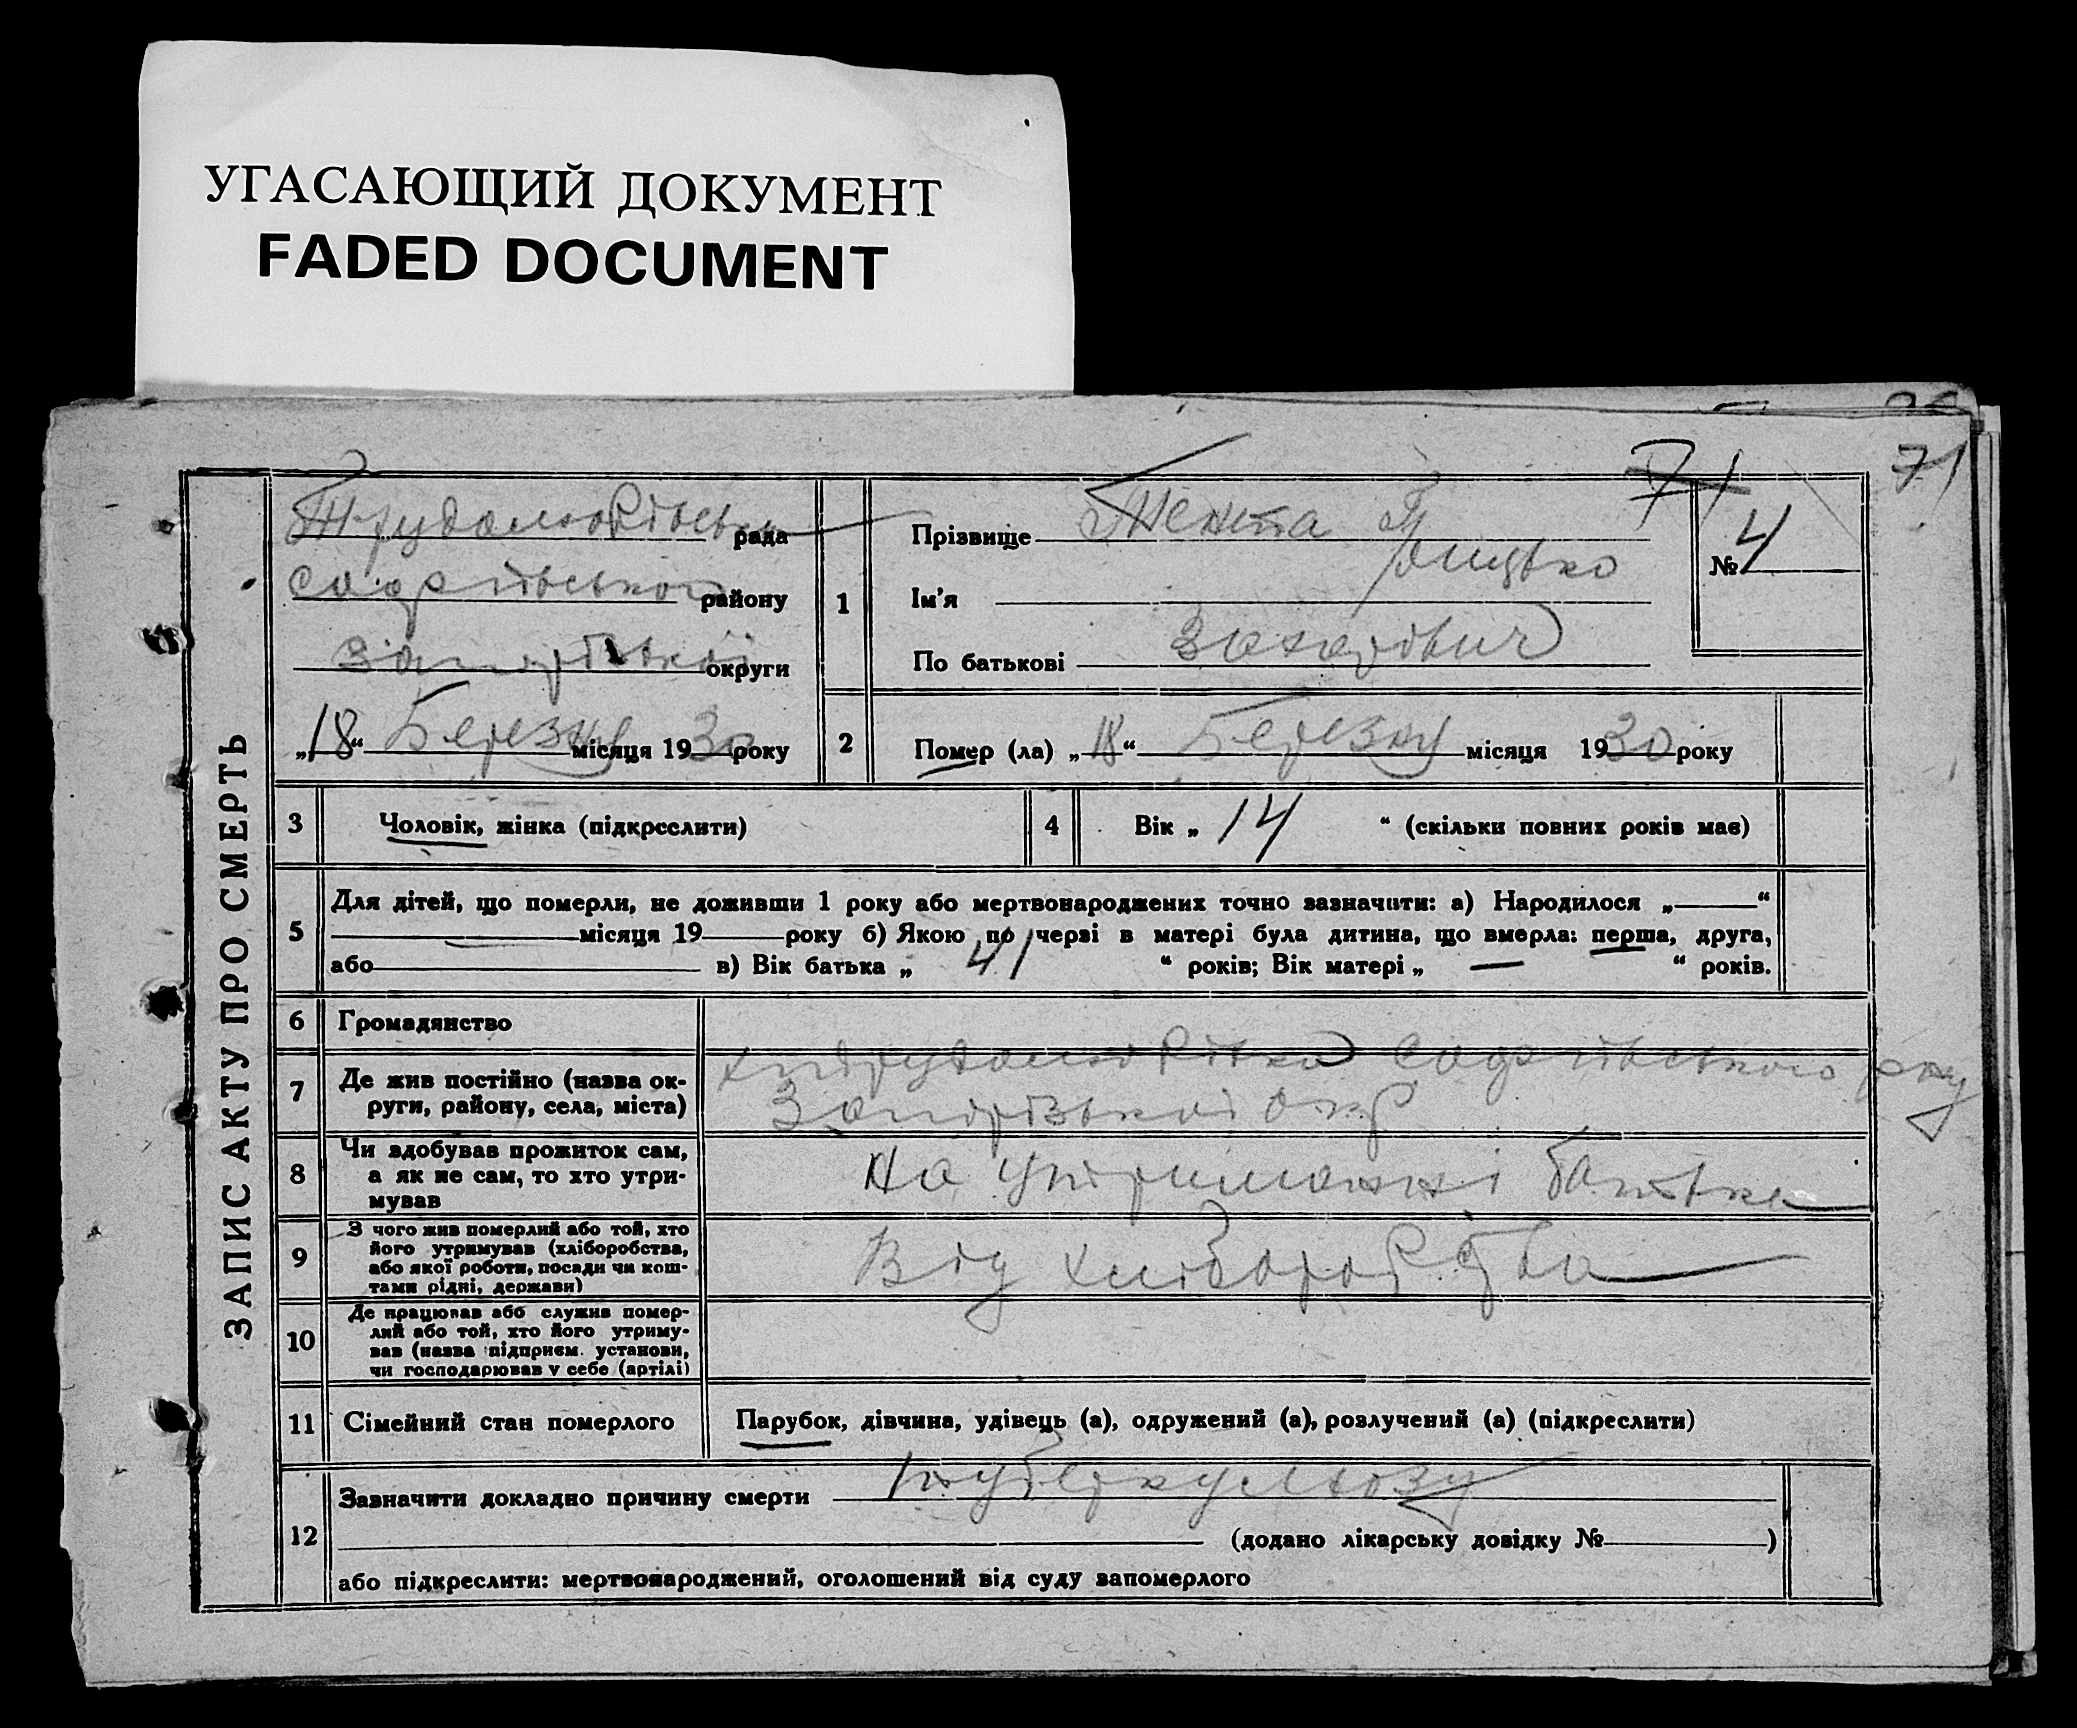 УГАСАЮЩИЙ ДОКУМЕНТ
FADED DOCUMENT
71
71
ЗАПИС АКТУ ПРО СМЕРТЬ
Трудолюбівська рада
Софіївського району
Запорізької округи
„18“ Березня місяця 1930 року
1
Прізвище
Ім'я Грицько
По батькові Захарович
№ 4
2
Помер (ла) „18“ Березня місяця 1930 року
3
Чоловік, жінка (підкреслити)
4
Вік „ 14 “ (скільки повних років має)
5
Для дітей, що померли, не доживши 1 року або мертвонароджених точно зазначити: а) Народилося „ “
місяця 19 року б) Якою по черзі в матері була дитина, що вмерла: перша, друга,
або в) Вік батька „ 41 “ років; Вік матері „ — “ років.
6
Громадянство
7
Де жив постійно (назва ок-
руги, району, села, міста)
Трудолюбівка Софіївського р-ну
Запорізької окр
8
Чи здобував прожиток сам,
а як не сам, то хто утри-
мував
На утриманні батька
9
З чого жив померлий або той, хто
його утримував (хліборобства,
або якої роботи, посади чи кош-
тами рідні, держави)
Від хліборобства
10
Де працював або служив помер-
лий або той, хто його утриму-
вав (назва підприєм. установи,
чи господарював у себе (артілі)
11
Сімейний стан померлого
Парубок, дівчина, удівець (а), одружений (а), розлучений (а) (підкреслити)
12
Зазначити докладно причину смерти туберкульозу
(додано лікарську довідку № )
або підкреслити: мертвонароджений, оголошений від суду запомерлого